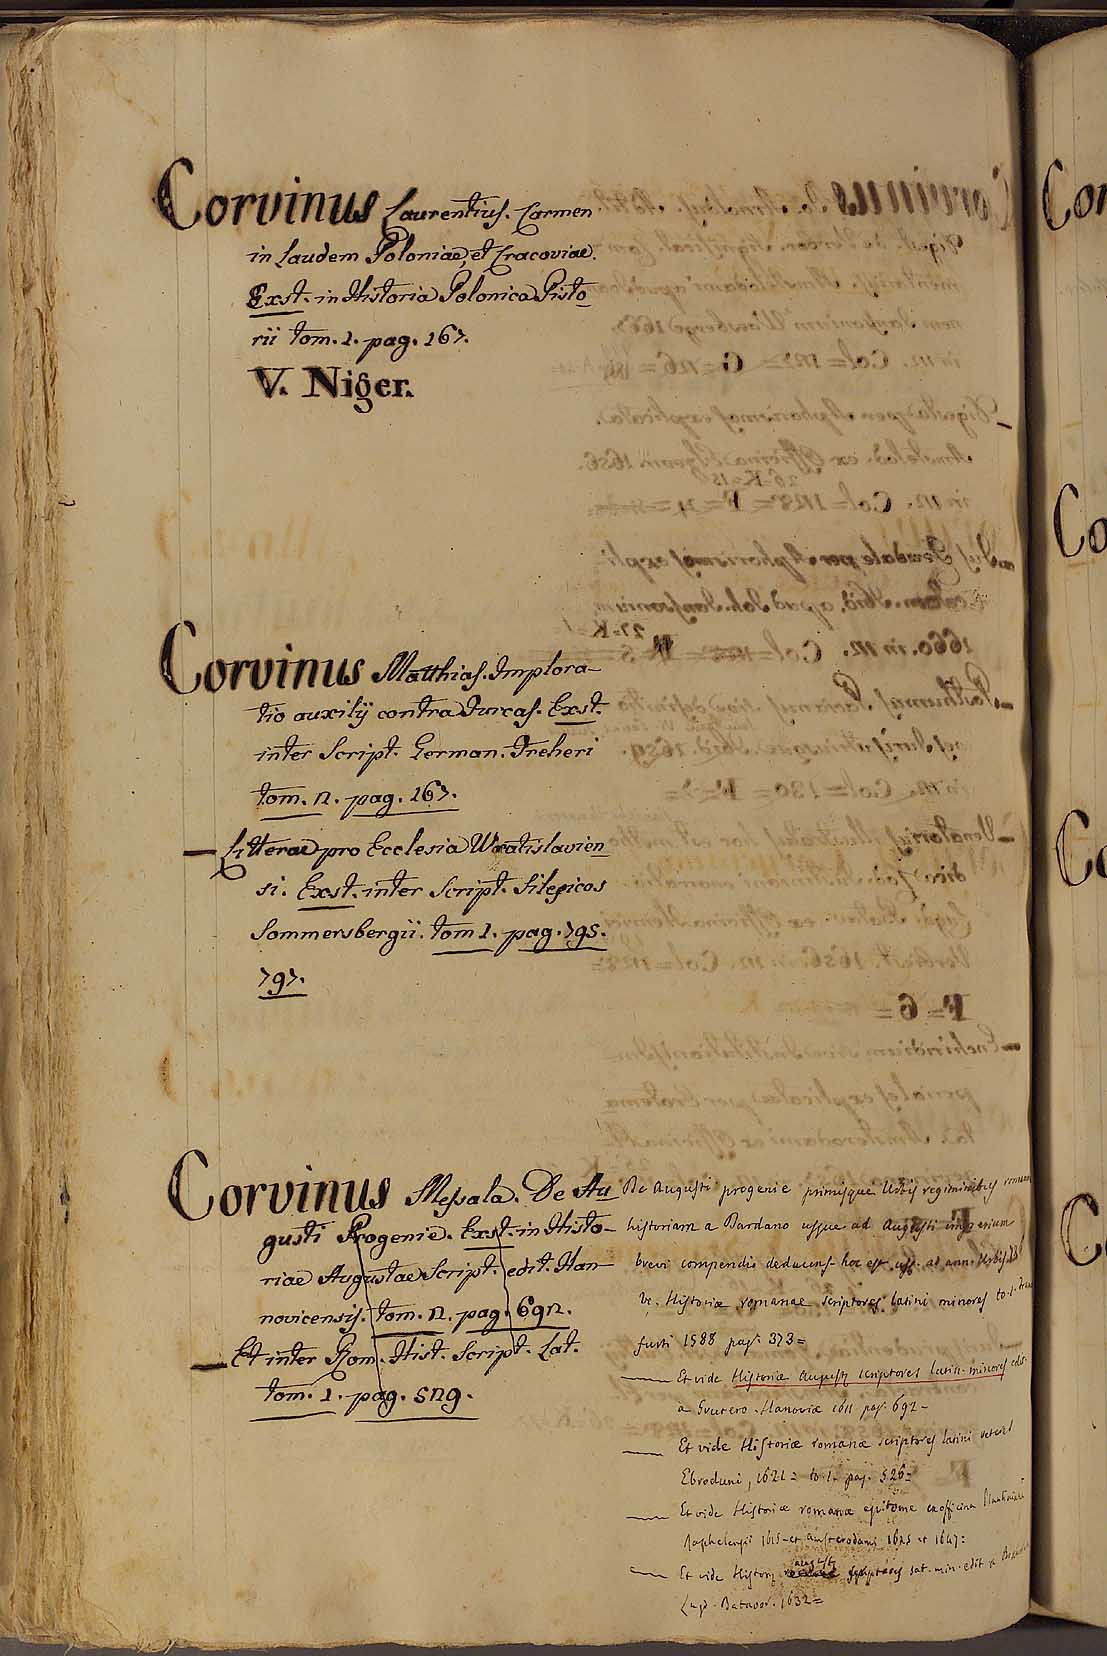 Corvinus Laurentius. Carmen
in Laudem Poloniae, et Cracoviae.
Exst. in Historia Polonica Pisto
rii tom. 1. pag. 167.
V. Niger.
Corvinus Matthias. Implora-
tio auxilij contra Turcas. Exst.
inter Script. German. Freheri
tom. 2. pag. 167.
— Litterae pro Ecclesia Wratislavien
si. Exst. inter Script. Silesicos
Sommersbergii. tom 1. pag. 795.
797.
Corvinus Messala. De Au
gusti Progenie. Exst. in Histo-
riae Augustae Script. edit. Han
novicensis. tom. 2. pag. 692.
— Et inter Rom. Hist. Script. Lat.
tom. 1. pag. 529.
De Augusti progenie primisque Urbis regiminibus
historiam a Dardano usque ad Augusti imperium
brevi compendio deducens hoc est usq. ad ann. Urbis
V. Historiae romanae scriptores latini minores to. 1.
furti 1588 pag. 373=
— Et vide Historiae August scriptores latin. minores edit.
a Grutero. Hanoviae 1611 pag. 692-
— Et vide Historiae romanae scriptores latini veteres
Ebroduni, 1621= to. 1. pag. 526=
— Et vide Historiae romanae epitome ex officina Plantiniana
Raphelengii 1615 - et Amsterodami 1625 et 1647:
— Et vide Histor August scriptores lat. min. edit a
Lugd. Batavor. 1632=